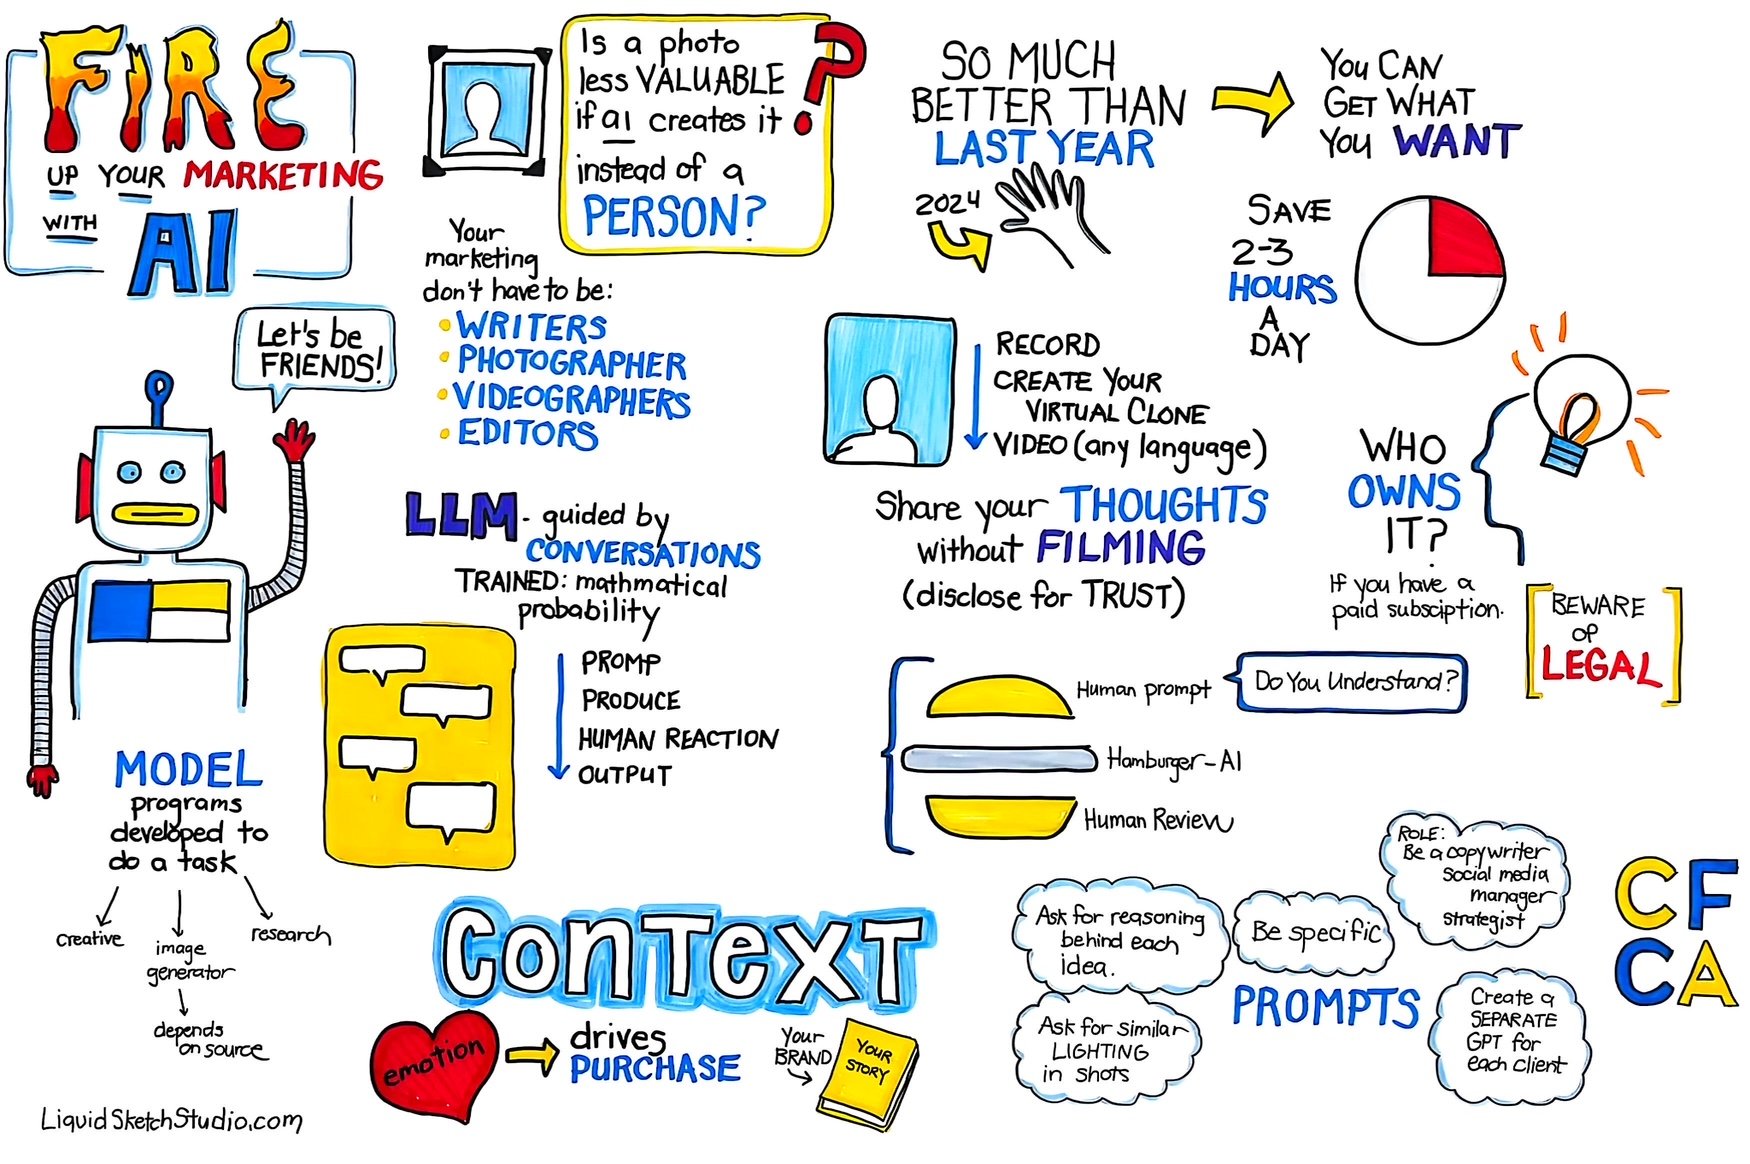 FIRE
UP YOUR MARKETING
WITH
AI
Let's be
FRIENDS!
MODEL
programs
developed to
do a task
creative
image
generator
research
depends
on source
LiquidSketchStudio.com
Is a photo
less VALUABLE
if aI creates it
instead of a
PERSON?
?
Your
marketing
don't have to be:
• WRITERS
• PHOTOGRAPHER
• VIDEOGRAPHERS
• EDITORS
LLM - guided by
CONVERSATIONS
TRAINED: mathmatical
probability
PROMP
PRODUCE
HUMAN REACTION
OUTPUT
ConTexT
emotion
drives
PURCHASE
Your
BRAND
YOUR
STORY
SO MUCH
BETTER THAN
LAST YEAR
2024
You CAN
GET WHAT
You WANT
SAVE
2-3
HOURS
A
DAY
RECORD
CREATE YOUR
VIRTUAL CLONE
VIDEO (any language)
Share your THOUGHTS
without FILMING
(disclose for TRUST)
WHO
OWNS
IT?
If you have a
paid subsciption.
BEWARE
OF
LEGAL
Human prompt
Do You Understand?
Hamburger-AI
Human Review
Ask for reasoning
behind each
idea.
Be specific
ROLE:
Be a copywriter
social media
manager
strategist
CF
CA
PROMPTS
Ask for similar
LIGHTING
in shots
Create a
SEPARATE
GPT for
each client